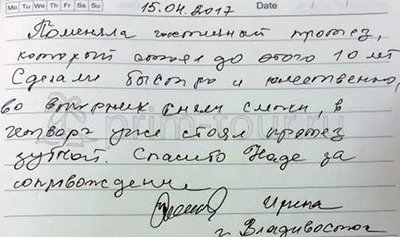 Mo Tu We Th Fr Sa Su
Date
15.04.2017
Поменяла частичный протез,
который стоял до этого 10 лет
Сделали быстро и качественно,
во вторник сняли слепки, в
четверг уже стоял протез
зубной. Спасибо Наде за
сопровождение
Ирина
г. Владивосток
prim-tour.ru